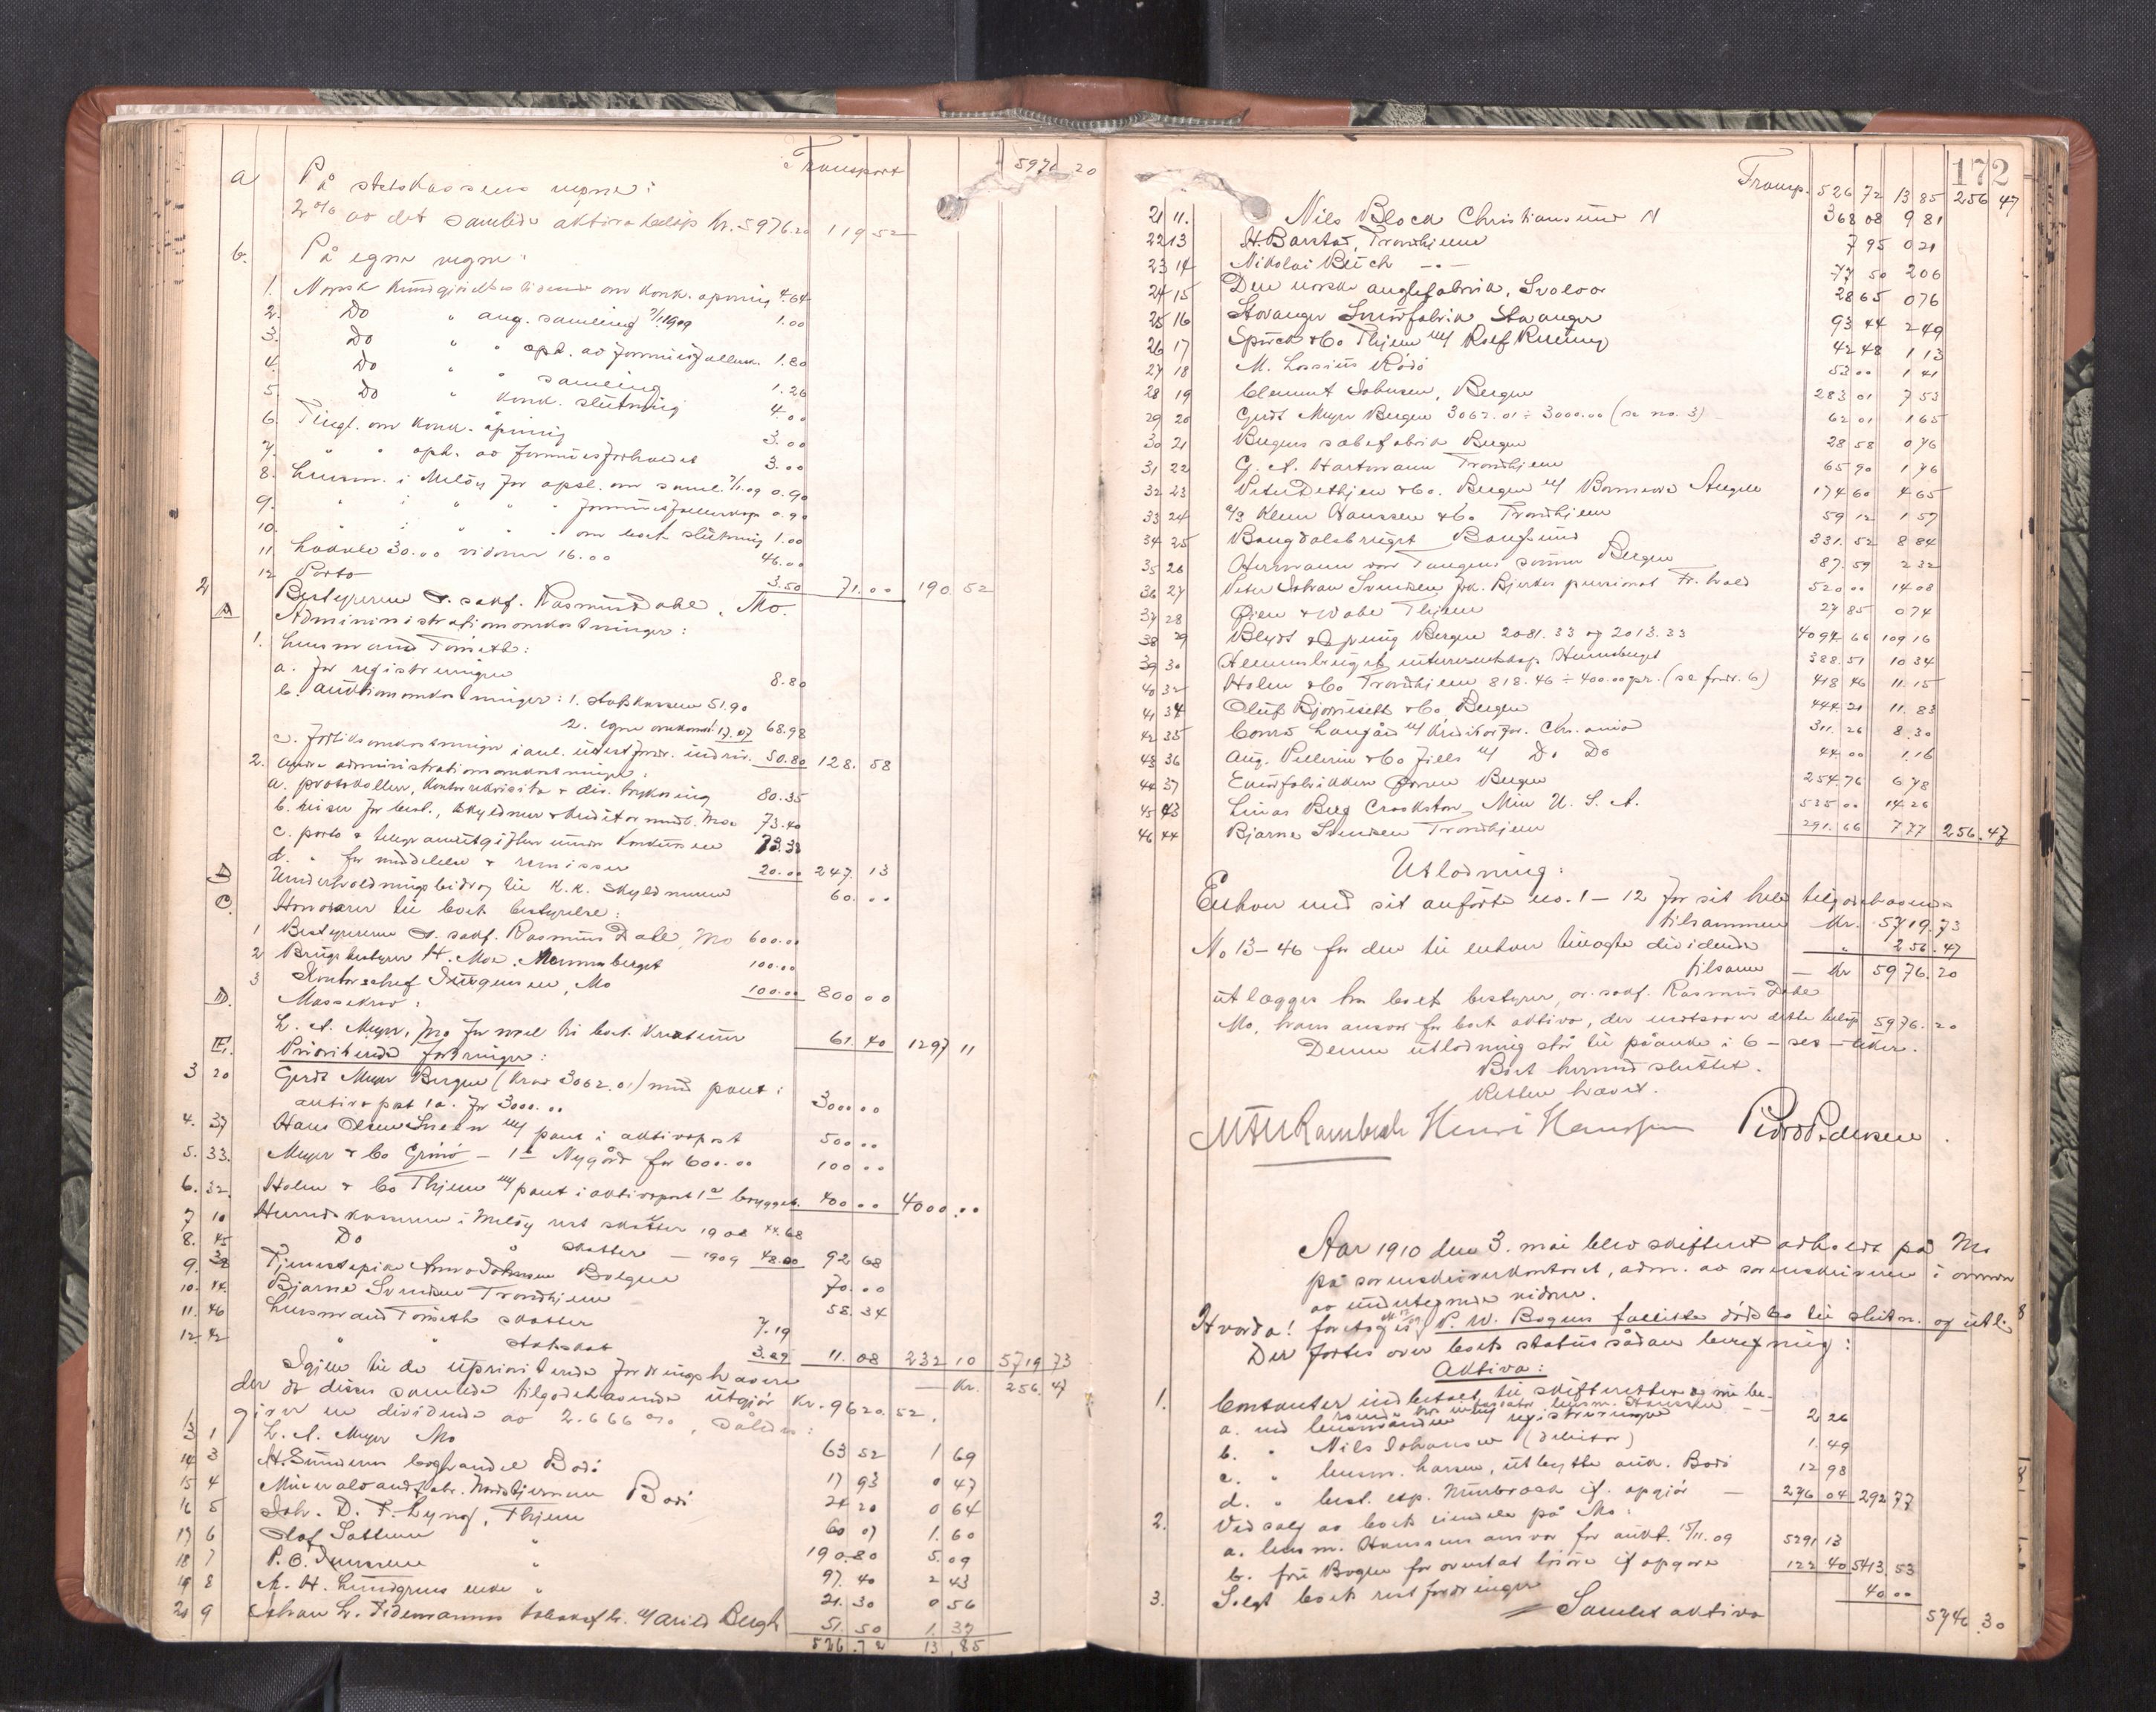 Transport 5976 20
a På statskassens regne:
2 % av det samlede aktivabeløp kr. 5976.20 119 52
b. På egne regne:
1. Norsk Kundgjørelsestidende om konk. åpning 4.64
2. Do " ang. samling 7/1 1909 1.00
3. Do " " oph. av formuesfællessk. 1.80
4. Do " " samling 1.26
5. Do " konk. slutning 4.00
6. Tingl. om konk. åpning 3.00
7. " " oph. av formuesforholdet 3.00
8. Lensm. i Meløy for opsl. om saml. 7/1.09 0.90
9. " i " " " formuesfællesskap 0.90
10. " i " " " om boets slutning 1.00
11. Lokale 30.00 vidner 16.00 46.00
12 Porto 3.50 71.00 190 52
2 Bestyreren o. sakf. Rasmus Dahl, Mo.
A Administrationsomkostninger:
1. Lensmand Tømeth:
a. for registreringen 8.80
b. auktionsomkostninger: 1. statskassen 51.90
2. egne omkostn. 17.07 68.98
c. fortidsomkostninger i anl. utest. fordr. inddriv. 50.80 128.58
2. andre administrationsomkostninger:
a. protokoller, kontorrekvisita & div. trykning 80.35
b. reiser for best., skyldner & kreditorudv. Moe 73.40
c. porto & telegramutgifter under konkursen 73.38
d. " for meddelelse & remisser 20.00 247.13
B Underholdningsbidrag til K.K. skyldneren 60.00
C. Honorarer til boets bestyrelse:
1 Bestyreren o. sakf. Rasmus Dahl, Mo 600.00
2 Brugsbestyrer H. Moe. Nemmsberget 100.00
3 Kontorchef Jürgensen, Mo 100.00 800 00
D. Massekrav:
L. A. Meyer, Mo for mel til boets kreaturer 61.40 1297 11
E. Prioriterede fordringer:
3 20 Gerdt Meyer Bergen (krav 3062.01) med pant i
aktiva post 1a. for 3000.00 3000 00
4. 37 Hans Olsen Sneen m/ pant i aktivapost 500 00
5. 33. Meyer & Co Grimø — 1 b Nygård for 600.00 100 00
6. 32. Holm & Co Thjem m/ pant i aktivapost 1a bryggeh. 400.00 4000.00
7 10 Herredskassereren i Meløy rest skatter 1908 44.68
8. 45 Do " skatter — 1909 48.00 92 68
9. 38 Tjenestepike Anna Johnsen Bolgen 70.00
10. 44. Bjarne Svendsen Trondhjem 58.34
11. 46 Lensmand Tømeth skatter 7.19
12 42 " " statsskat 3.89 11.08 232 10 5719 73
Igjen til de upriorit erede fordringshavere — Kr. 256.47
der da disses samlede tilgodehavende utgjør kr. 9620.52.
giver en dividende av 2.666 %, således:
13 1 L. A. Meyer Mo 63 52 1 69
14 3 A. Gundersens boghandel Bodø 17 93 0 47
15 4 Mineralvandfabr. Nordstjernen Bodø 24 20 0 64
16 5 Joh. D. F. Lyng, Thjem 60 07 1.60
17 6 Olaf Sættem " 190.80 5.09
18 7 P. O. Iversen " 97.40 2 43
19 8 M. H. Lundgrens enke " 21.30 0 56
20 9 Johan L. Tidemanns tobaksf br. m/ Arild Bergh 51.50 1.37
526.72 13.85
172
Transp. 526 72 13 85 256 47
21 11. Nils Block Christiansund N 368 08 9 81
22 13 H. Barstad, Trondhjem 7 95 0 21
23 14 Nikolai Buch — " — 77 50 2 06
24 15 Den norske anglefabrik, Svolvær 28 65 0 76
25 16 Stavanger Smørfabrik Stavanger 93 44 2 49
26 17 Spörck & Co Thjem m/ Rolf Kunning 42 48 1 13
27 18 M. Lossius Rødø 53 00 1 41
28 19 Clement Johnsen, Bergen 283 01 7 53
29 20 Gerdt Meyer Bergen 3062.01 ÷ 3000.00 (se no. 3) 62 01 1 65
30 21 Bergens sæbefabrik Bergen 28 58 0 76
31 22 G. A. Hartmann Trondhjem 65 90 1 76
32 23 Peter Dethjen & Co. Bergen m/ 174 60 4 65
33 24 a/s Klem Hanssen & Co. Trondhjem 59 12 1 57
34 25 Bangdalsbruget Bangsund 331.52 8 84
35 26 Herrmann von Tangens sønner Bergen 87.59 2 32
36 27 Peter Johan Svendsen frk. Bjerkes pensionat Fr.hald 520 00 14 08
37 28 Øien & Wahl Thjem 27 85 0 74
38 29 Blydt & Oppung Bergen 2081.33 og 2013.33 4094 66 109 16
39 30 Nemmsbruget interessentskap Nemmsberget 388.51 10 34
40 32 Holm & Co Trondhjem 818.46 ÷ 400.00 pr. (se fordr. 6) 418 46 11.15
41 34 Oluf Bjørnseth & Co. Bergen 444.21 11.83
42 35 Conrad Langård m/ Kreditorfor. Chr.ania 311.26 8.30
43 36 Aug. Pellerin & Co fills m/ Do Do 44.00 1.16
44 37 Esmørfabrikken Ørnen Bergen 254.76 6 78
45 43 Linas Berg Crookston Min U. S. A. 535 00 14.26
46 44 Bjarne Svendsen Trondhjem 291.66 7.77 256.47
Utlodning:
Enhver med sit anførte no. 1 — 12 for sit hele tilgodehavende
tilsammen Kr. 5719.73
No 13 — 46 for den til enhver tillagte dividende " 256.47
tilsamen — Kr 5976.20
utlægges hos boets bestyrer, o. sakf. Rasmus Dahl
Mo, hvem ansvar for boets aktiva, der motsvarer dette beløp 5976.20
Denne utlodning står til påanke i 6 — seks — uker.
Boet hermed sluttet.
Retten hævet.
MAURambech Henri Hansen Peder Pedersen.
Aar 1910 den 3. mai blev skifteret avholdt på Mo
på sorenskriverkontoret, adm. av sorenskriveren i overvær
av undertegnede vidner.
Hvorda! foretoges P. W. Bogens fallitte dødsbo til slutn. og utl. 8
Der førtes over boets status sådan beregning:
Aktiva:
1. Contanter indbetalt til skifteretten &
a. ved lensmanden registreringen 2 26
b. " Nils Johansen (debitor) 1.49
c. " lensm. Larsen, utbytte auk. Bodø 12 98
d. " best. exp. Nürbrock if. opgjør — 276 04 292 77
2. Ved salg av boets eiendele på Mo:
a. lensm. Hanssens ansvar for aukt. 15/11.09 5291 13
b. fru Bogen for overtat løsøre if opgave 122 40 5413.53
3. Solgt boets rest fordringer 40 00
Samlet aktiva 5746.30